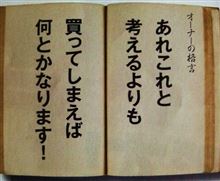 オーナーの格言
あれこれと
考えるよりも
買ってしまえば
何とかなります！